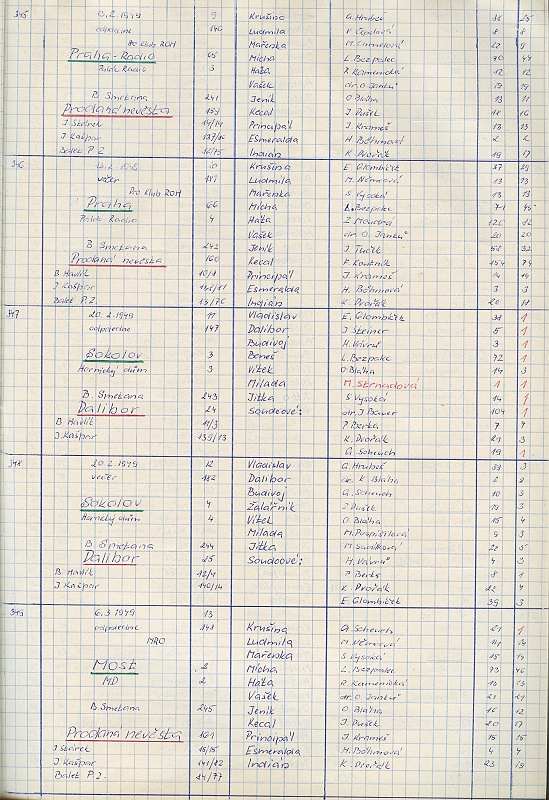 345 13.2.1949 9 Krušina G. Hrubeš 38 25
odpoledne 146 Ludmila V. Čepalová 8 8
Pro Klub ROH Mařenka M. Camutová 20 9
Praha-Radio 65 Mícha L. Bezpalec 70 44
Palác Radio 3 Háta R. Kamenická 12 12
Vašek dr. O. Janků 19 19
B. Smetana 241 Jeník O. Bláha 13 11
Prodaná nevěsta 159 Kecal J. Dušek 18 16
J. Stárek 14/14 Principál J. Krameš 13 13
J. Kašpar 137/10 Esmeralda H. Böhmová 2 2
Balet P.Z. 12/75 Indián K. Dvořák 19 17
346 10 Krušina E. Olombíček 37 29
večer 181 Ludmila M. Němcová 13 13
Pro Klub ROH Mařenka S. Vysoká 13 13
Praha 66 Mícha L. Bezpalec 71 45
Palác Radio 4 Háta
Vašek dr. O. Janků 20 20
B. Smetana 242 Jeník J. Tuček
Prodaná nevěsta 160 Kecal F. Koutník 154 79
B. Havlík 10/1 Principál J. Krameš 14 14
J. Kašpar Esmeralda H. Böhmová 3 3
Balet P.Z. 13/76 Indián K. Dvořák 20 18
347 20.2.1949 11 Vladislav E. Olombíček 38 1
odpoledne 147 Dalibor J. Steiner 5 1
Budivoj H. Vávruš 3 1
Sokolov 3 Beneš L. Bezpalec 72 1
Hornický dům 3 Vítek O. Bláha 14 3
Milada M. Strnadová 1 1
B. Smetana 243 Jitka S. Vysoká 14 1
Dalibor 24 Soudcové: dr. J. Bauer 104 1
B. Havlík 11/3 P. Berka 7 7
J. Kašpar 139/13 K. Dvořák 21 3
G. Scheuch 19 1
348 20.2.1949 12 Vladislav G. Hrubeš 39 3
večer 182 Dalibor dr. K. Bláha 2 2
Budivoj G. Scheuch 10 3
Sokolov 4 Žalářník J. Dušek 19 3
Hornický dům 4 Vítek O. Bláha 15 4
Milada M. Pospíšilová 9 3
B. Smetana 244 Jitka M. Savilková 20 5
Dalibor 25 Soudcové: H. Vávruš 4 3
B. Havlík 12/4 P. Berka 8 1
J. Kašpar 140/14 K. Dvořák 22 4
E. Olombíček 39 3
349 6.3.1949 13
odpoledne 148 Krušina G. Scheuch 21 1
MRO Ludmila M. Němcová 14 24
Mařenka S. Vysoká 15 14
Most 2 Mícha L. Bezpalec 73 46
MD 2 Háta R. Kamenická 13 13
Vašek dr. O. Janků 21 21
B. Smetana 245 Jeník O. Bláha 16 12
Kecal J. Dušek 20 17
Prodaná nevěsta 161 Principál J. Krameš 15 15
J. Stárek 15/15 Esmeralda H. Böhmová 4 4
J. Kašpar 141/12 Indián K. Dvořák 23 19
Balet P.Z. 14/77